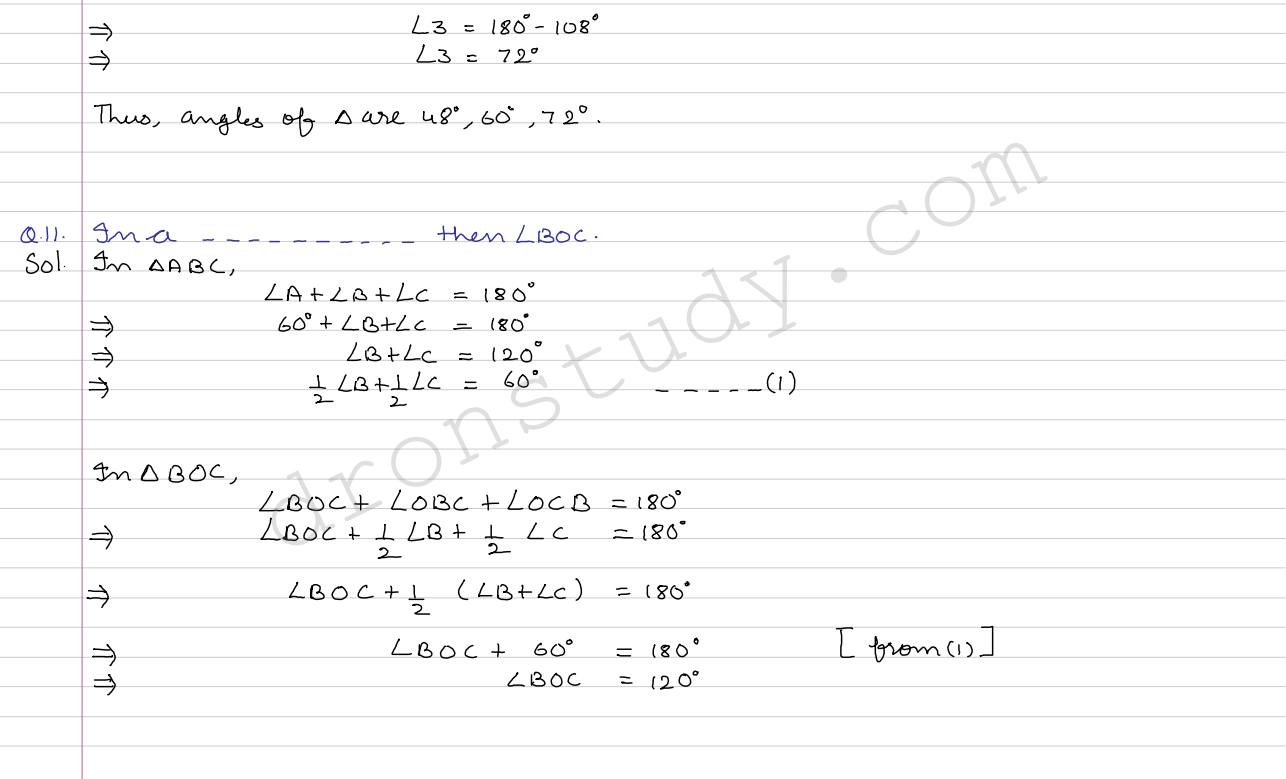 ⇒ ∠3 = 180° - 108°
⇒ ∠3 = 72°
Thus, angles of △ are 48°, 60°, 72°.
Q.11. In a ---------- then ∠BOC.
Sol. In △ABC,
∠A + ∠B + ∠C = 180°
⇒ 60° + ∠B + ∠C = 180°
⇒ ∠B + ∠C = 120°
⇒ 1/2 ∠B + 1/2 ∠C = 60° -----(1)
In △BOC,
∠BOC + ∠OBC + ∠OCB = 180°
⇒ ∠BOC + 1/2 ∠B + 1/2 ∠C = 180°
⇒ ∠BOC + 1/2 (∠B + ∠C) = 180°
⇒ ∠BOC + 60° = 180° [from (1)]
⇒ ∠BOC = 120°
dronstudy.com